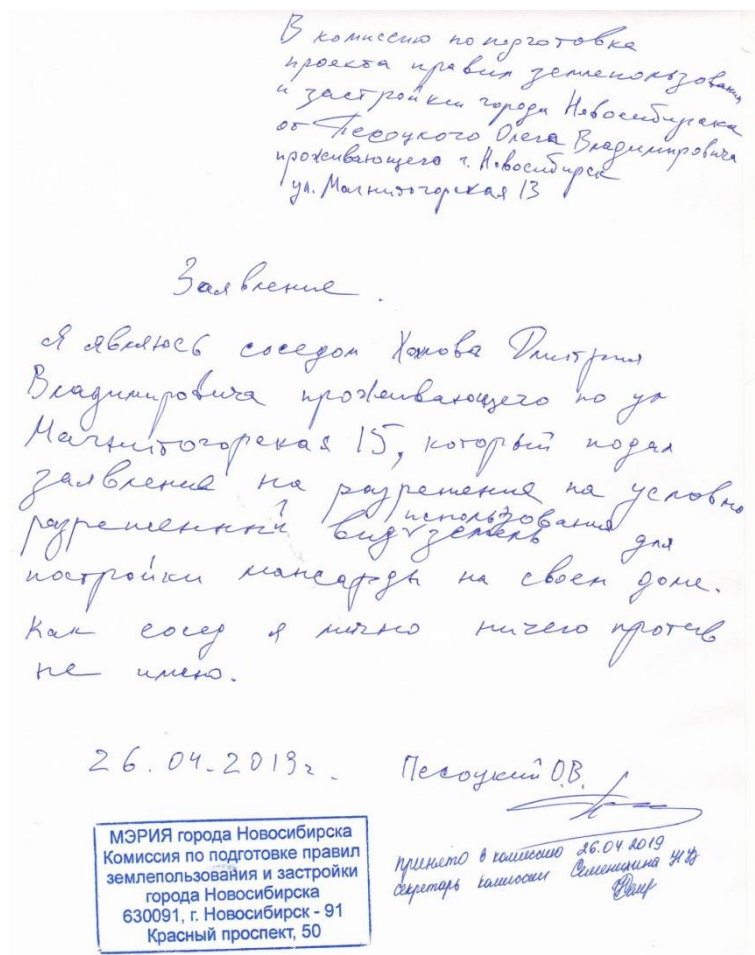 В комиссию по подготовке
проекта правил землепользования
и застройки города Новосибирска
от Песоцкого Олега Владимировича
проживающего г. Новосибирск
ул. Магнитогорская 13
Заявление.
Я являюсь соседом Дмитрия
Владимировича проживающего по ул
Магнитогорская 15, который подал
заявление на разрешение на условно
разрешенный вид использования земель для
постройки мансарды на своем доме.
Как сосед я лично ничего против
не имею.
26.04.2019г. Песоцкий О.В.
МЭРИЯ города Новосибирска
Комиссия по подготовке правил
землепользования и застройки
города Новосибирска
630091, г. Новосибирск - 91
Красный проспект, 50
принято в комиссию 26.04 2019
секретарь комиссии